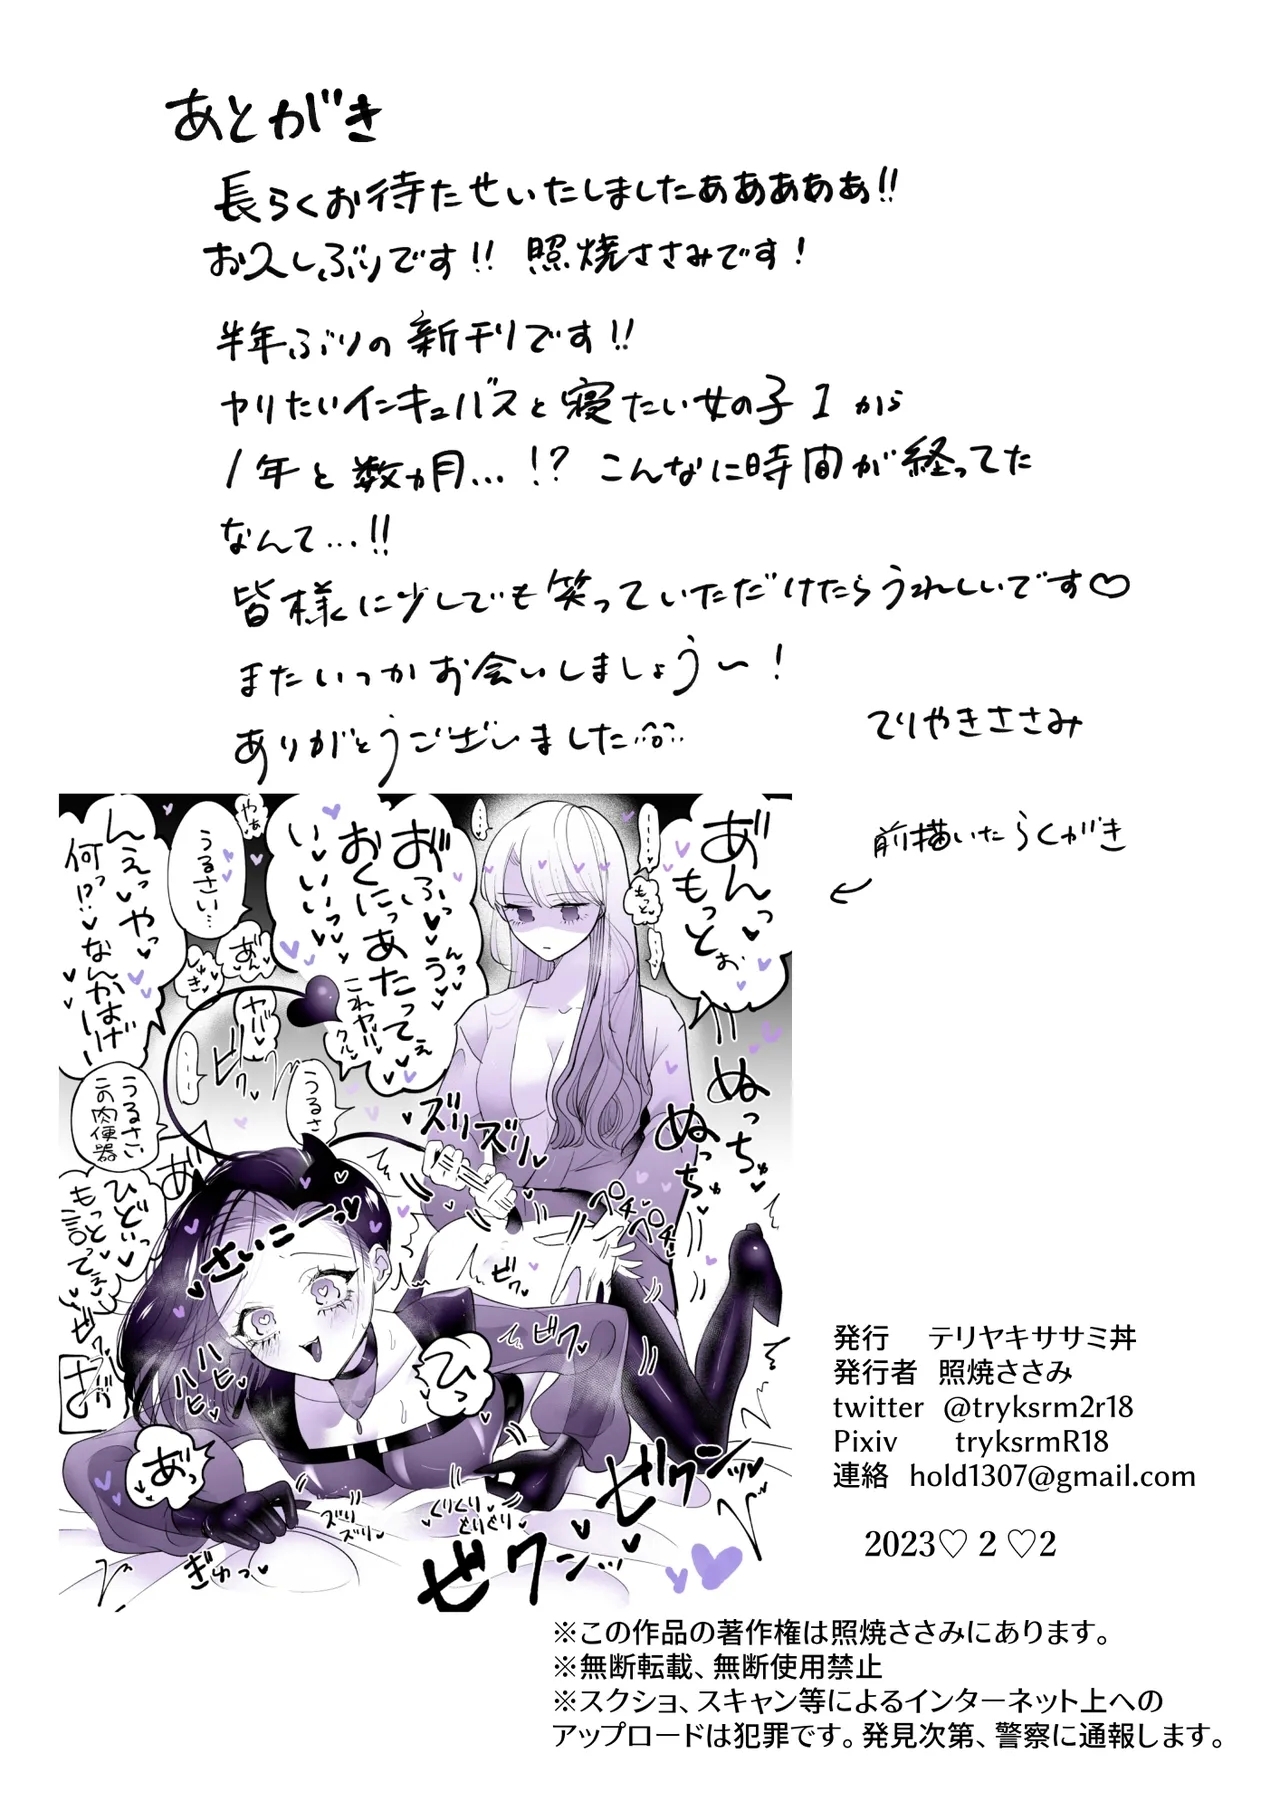 あとがき
長らくお待たせいたしましたあああああ!!
お久しぶりです!! 照焼ささみです!
半年ぶりの新刊です!!
ヤりたいインキュバスと寝たい女の子1から
1年と数ヵ月…!? こんなに時間が経ってた
なんて…!!
皆様に少しでも笑っていただけたらうれしいです♡
またいつかお会いしましょう〜!
ありがとうございました
てりやきささみ
前描いたらくがき
あ゛んっ
もっとぉ
もっと
お゛ふっ
おくにっあたってぇ
い、いいっ
これヤバ
うるさい…
んえっやっ
何っ!?なんかはげし
うるさ
うるさい
この肉便器
ひどいっ
もっと
言ってぇ
さいこーっ
ぬっちゅ
ぬっちゅ
ズリズリ
ビクッ
ひっ
あ゛っ
ハヒ
ハヒ
ズリ
ズリ
ぎゅっ
ゼクンッ
ゼクンッ
発行 テリヤキササミ丼
発行者 照焼ささみ
twitter @tryksrm2r18
Pixiv tryksrmR18
連絡 hold1307@gmail.com
2023♡2♡2
※この作品の著作権は照焼ささみにあります。
※無断転載、無断使用禁止
※スクショ、スキャン等によるインターネット上への
アップロードは犯罪です。発見次第、警察に通報します。